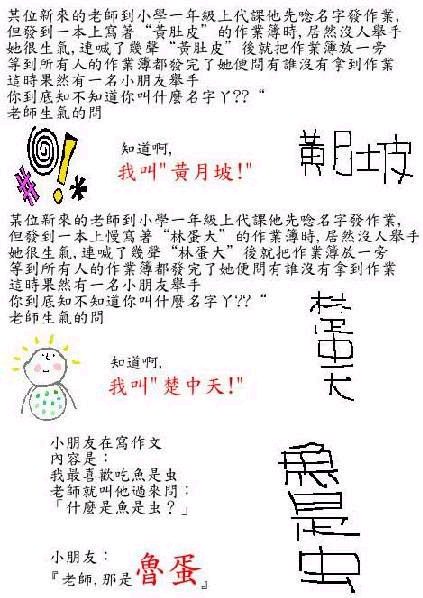 某位新來的老師到小學一年級上代課他先唸名字發作業,
但發到一本上寫著“黃肚皮”的作業簿時,居然沒人舉手
她很生氣,連喊了幾聲“黃肚皮”後就把作業簿放一旁
等到所有人的作業簿都發完了她便問有誰沒有拿到作業
這時果然有一名小朋友舉手
你到底知不知道你叫什麼名字丫??“
老師生氣的問
知道啊,
我叫"黃月坡!"
黃月土皮
某位新來的老師到小學一年級上代課他先唸名字發作業,
但發到一本上慢寫著“林蛋大”的作業簿時,居然沒人舉手
她很生氣,連喊了幾聲“林蛋大”後就把作業簿放一旁
等到所有人的作業簿都發完了她便問有誰沒有拿到作業
這時果然有一名小朋友舉手
你到底知不知道你叫什麼名字丫??“
老師生氣的問
知道啊,
我叫"楚中天!"
小朋友在寫作文
內容是:
我最喜歡吃魚是虫
老師就叫他過來問:
「什麼是魚是虫?」
小朋友:
『老師,那是魯蛋』